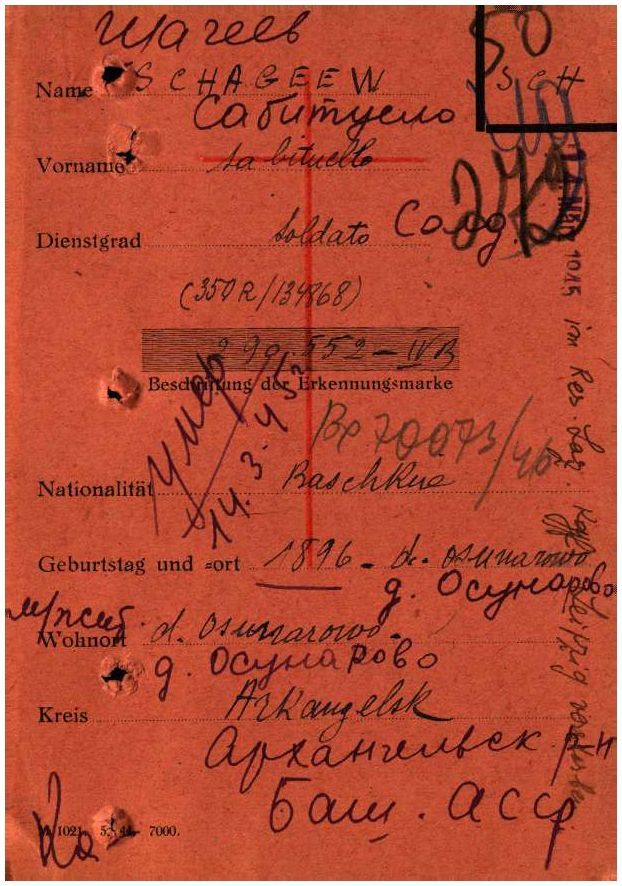 Шагеев
50
Name SCHAGEEW SCH
Сабитуело
Vorname Sabituello
Dienstgrad Soldato Солд.
(350R/134868)
290.552 - IV B
Beschriftung der Erkennungsmarke
умер
14.3.45
Вр 70073/46
Nationalität Baschkire
Geburtstag und -ort 1896 - d. Osunarowo
д. Осунарово
Wohnort d. Osunarowo -
д. Осунарово
Kreis Arkangelsk
Архангельск. р-н
Баш. асср
M 1021. 5. 41. 7000.
im Res. Laz.
Leipzig verstorben